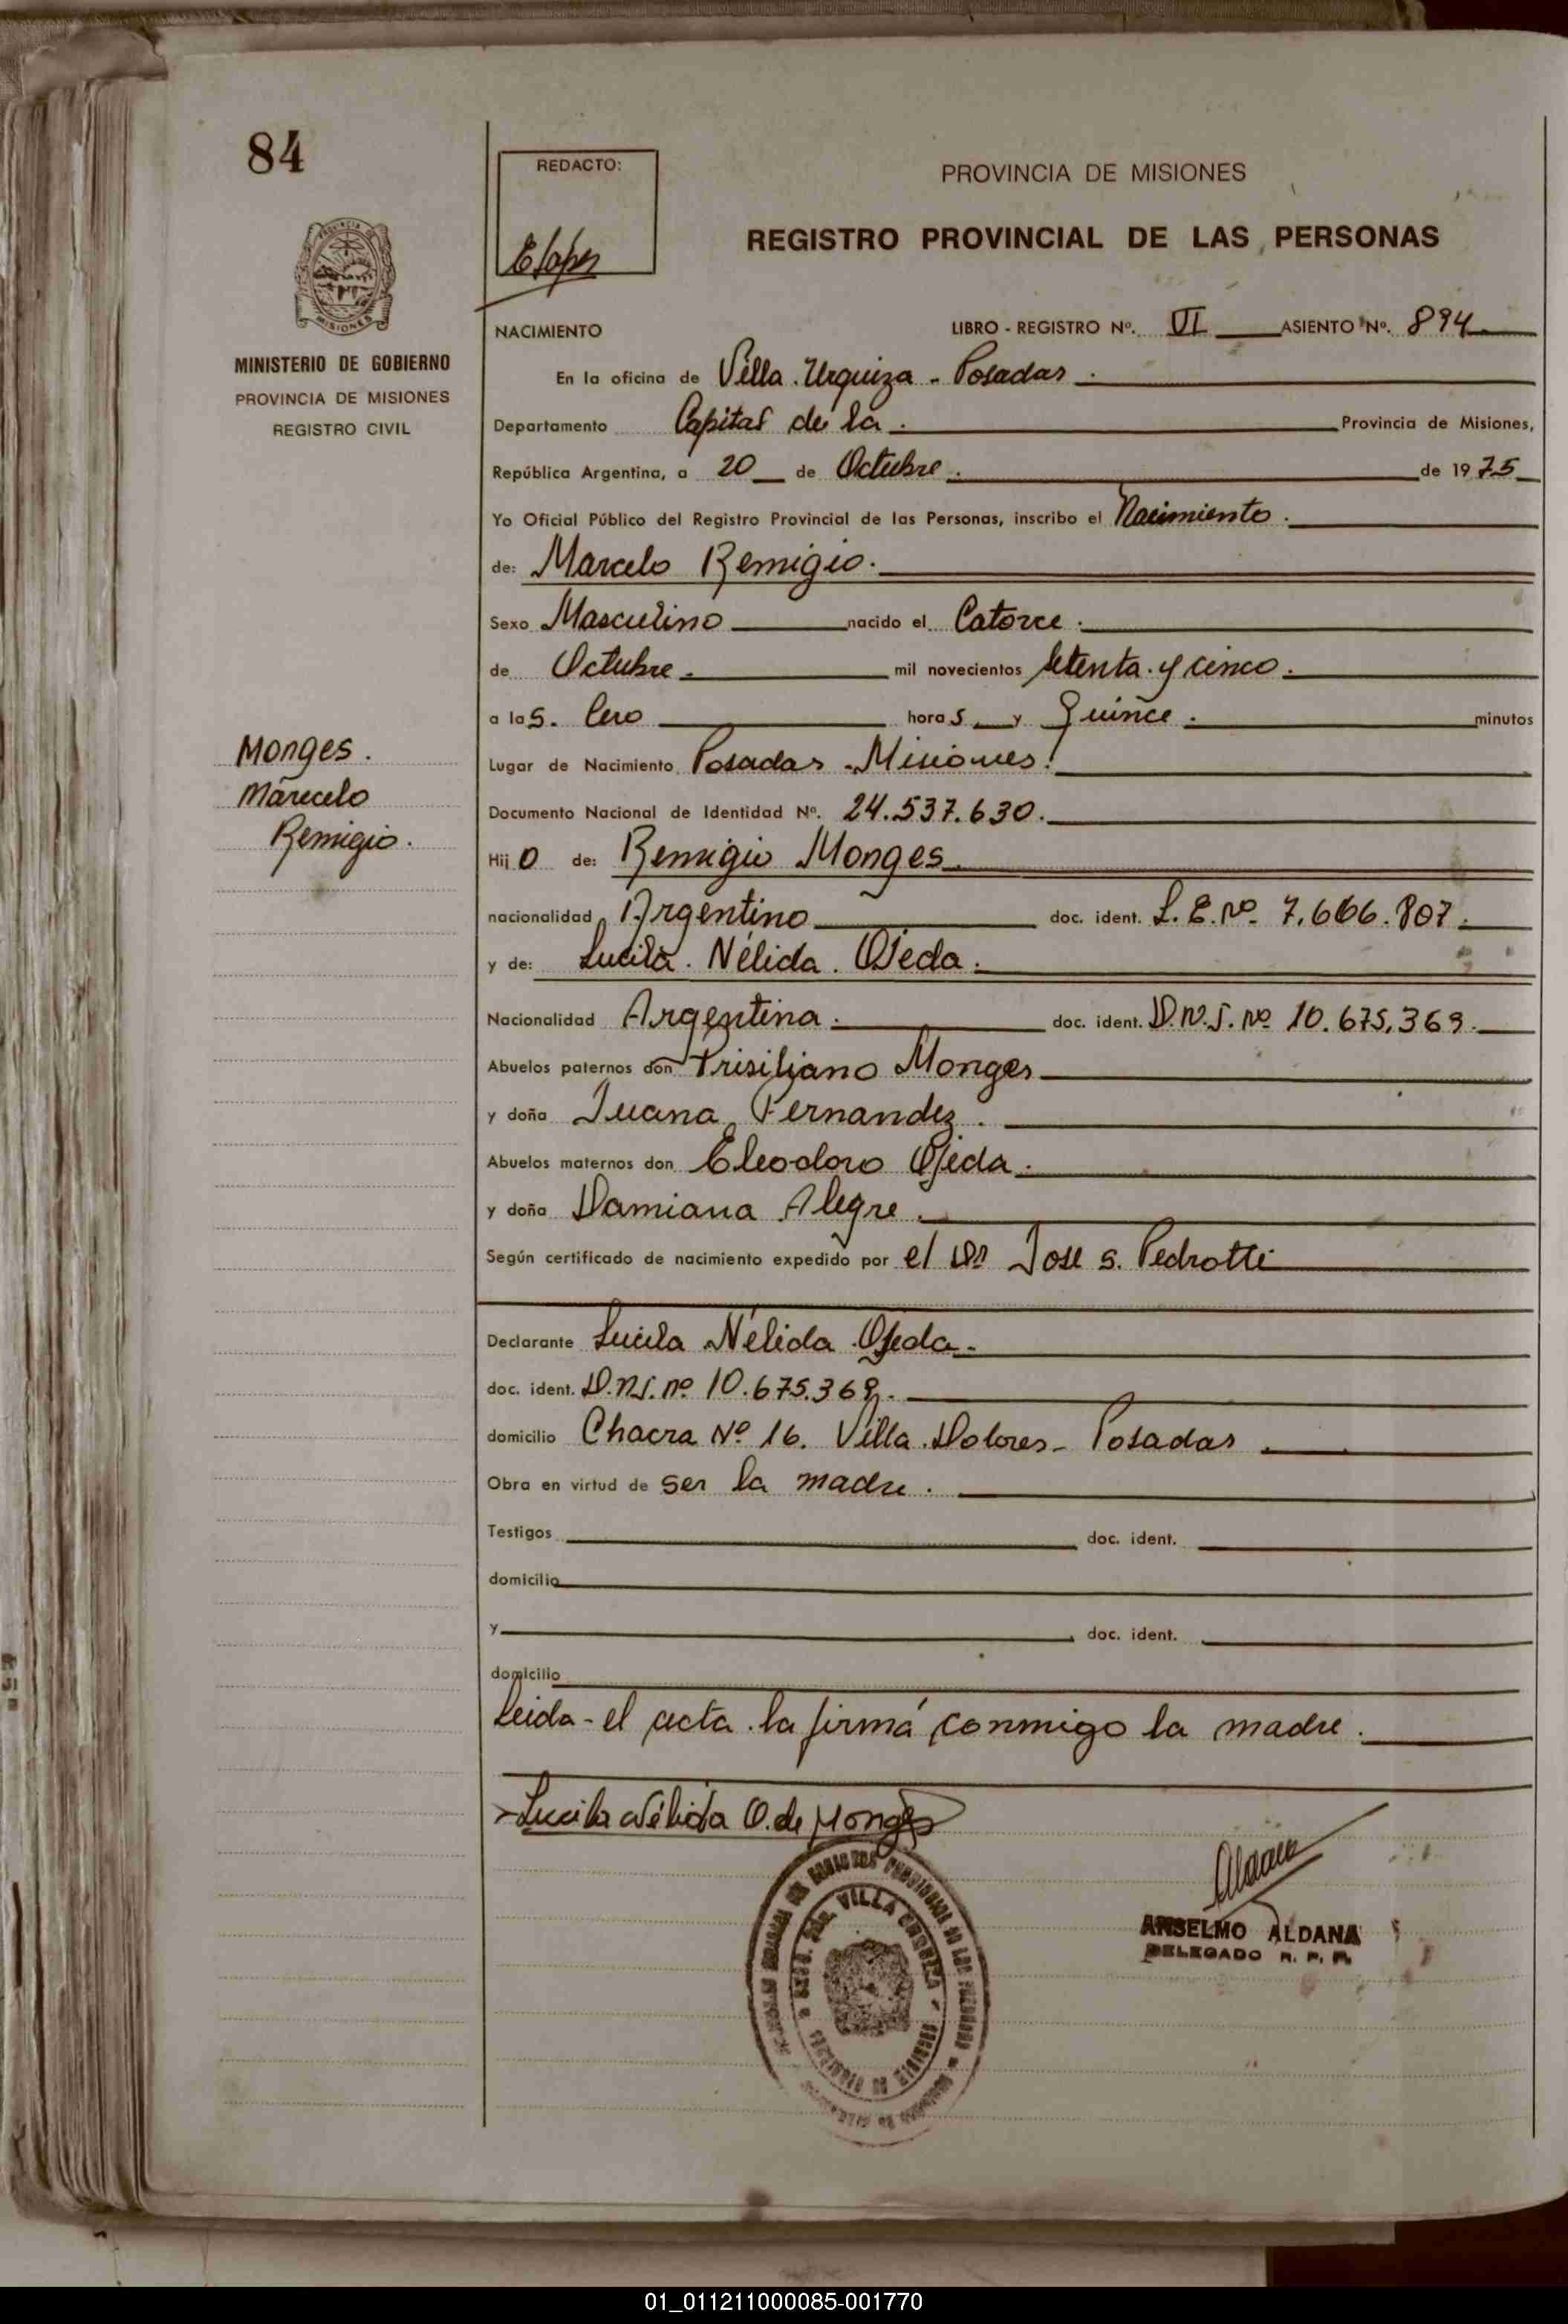 84
REDACTO:
PROVINCIA DE MISIONES
REGISTRO PROVINCIAL DE LAS PERSONAS
MISIONES
MINISTERIO DE GOBIERNO
PROVINCIA DE MISIONES
REGISTRO CIVIL
NACIMIENTO LIBRO - REGISTRO Nº. VI ASIENTO Nº. 894
En la oficina de Villa Urquiza - Posadas
Departamento Capital de la Provincia de Misiones,
República Argentina, a 20 de Octubre de 1975
Yo Oficial Público del Registro Provincial de las Personas, inscribo el Nacimiento
de: Marcelo Remigio
Sexo Masculino nacido el Catorce
de Octubre mil novecientos setenta y cinco
a las Cero horas y Quince minutos
Monges
Marcelo
Remigio
Lugar de Nacimiento Posadas - Misiones
Documento Nacional de Identidad Nº. 24.537.630
Hijo de: Remigio Monges
nacionalidad Argentino doc. ident. L.E. Nº 7.666.807
y de: Lucila Nélida Ojeda
Nacionalidad Argentina doc. ident. D.N.I. Nº 10.675.369
Abuelos paternos don Prisiliano Monges
y doña Juana Fernandez
Abuelos maternos don Eleodoro Ojeda
y doña Damiana Alegre
Según certificado de nacimiento expedido por el Dr Jose S. Pedrotti
Declarante Lucila Nélida Ojeda
doc. ident. D.N.I. Nº 10.675.369
domicilio Chacra Nº 16. Villa Dolores - Posadas
Obra en virtud de ser la madre
Testigos doc. ident.
domicilio
y doc. ident.
domicilio
Leida el acta la firmá conmigo la madre
Lucila Nélida O. de Monges
VILLA URQUIZA
ANSELMO ALDANA
DELEGADO R. P. P.
01_011211000085-001770